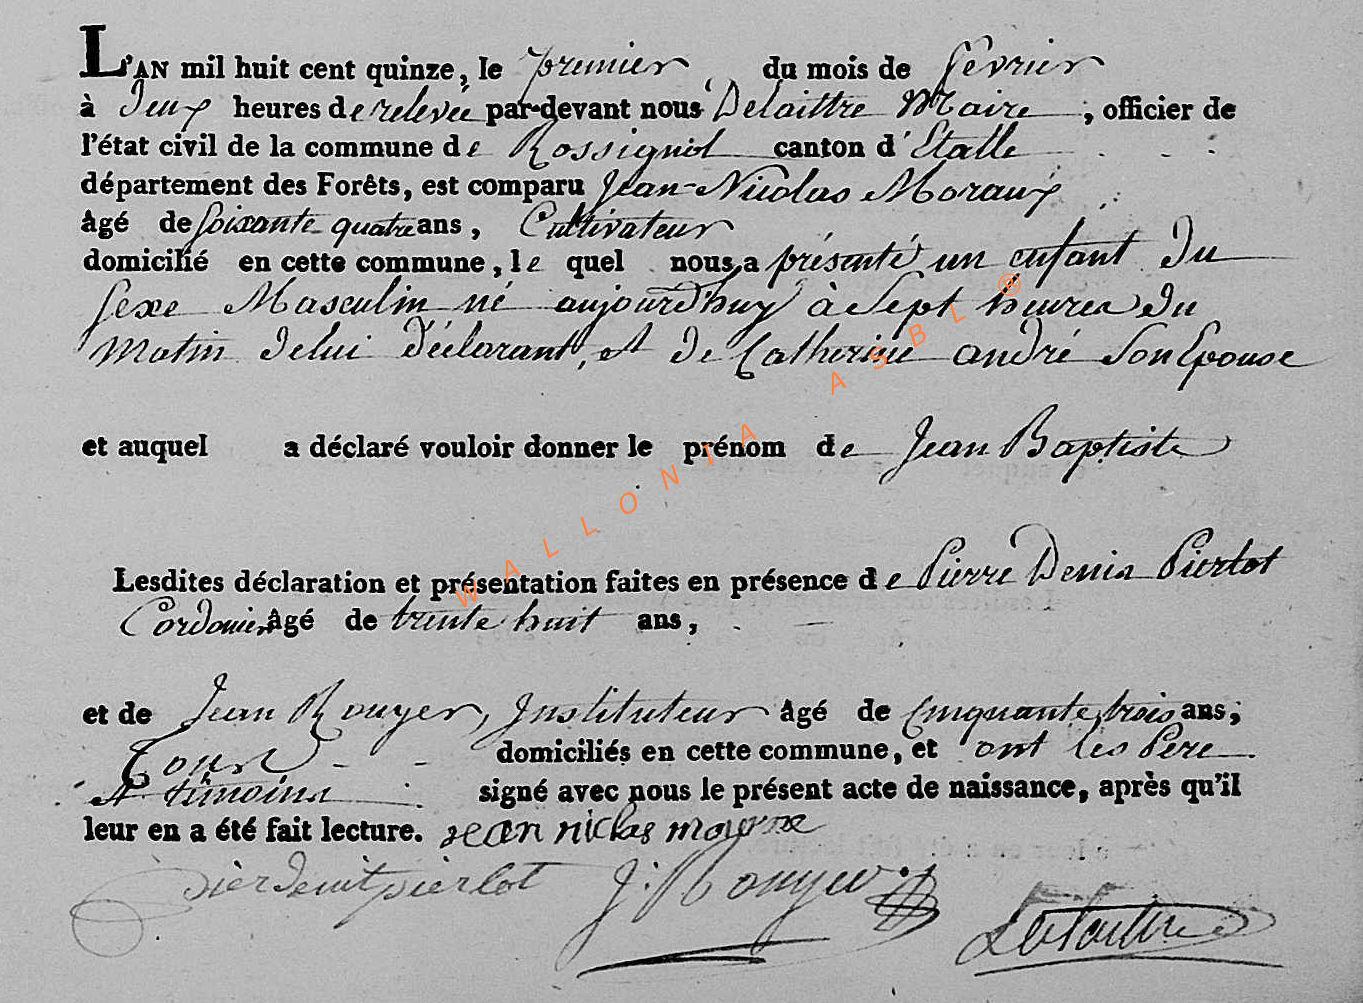 L'AN mil huit cent quinze, le premier du mois de février
à Deux heures de relevée par-devant nous Delaittre Maire ; officier de
l'état civil de la commune de Rossignol canton d'Etalle
département des Forêts, est comparu Jean-Nicolas Moraux
âgé de soixante quatre ans, Cultivateur
domicilié en cette commune, le quel nous a présenté un enfant du
sexe Masculin né aujourd'huy à sept heures du
matin de lui déclarant, et de Catherine andré son Epouse
et auquel a déclaré vouloir donner le prénom de Jean Baptiste
Lesdites déclaration et présentation faites en présence de Pierre Denis Pierlot
Cordonier âgé de trente huit ans,
et de Jean Rouyer, Instituteur âgé de cinquante trois ans;
Tous domiciliés en cette commune, et ont les Pere
et témoins signé avec nous le présent acte de naissance, après qu'il
leur en a été fait lecture. jean niclas
pierlot J. Rouyer Delaittre
WALLONIA ASBL ®